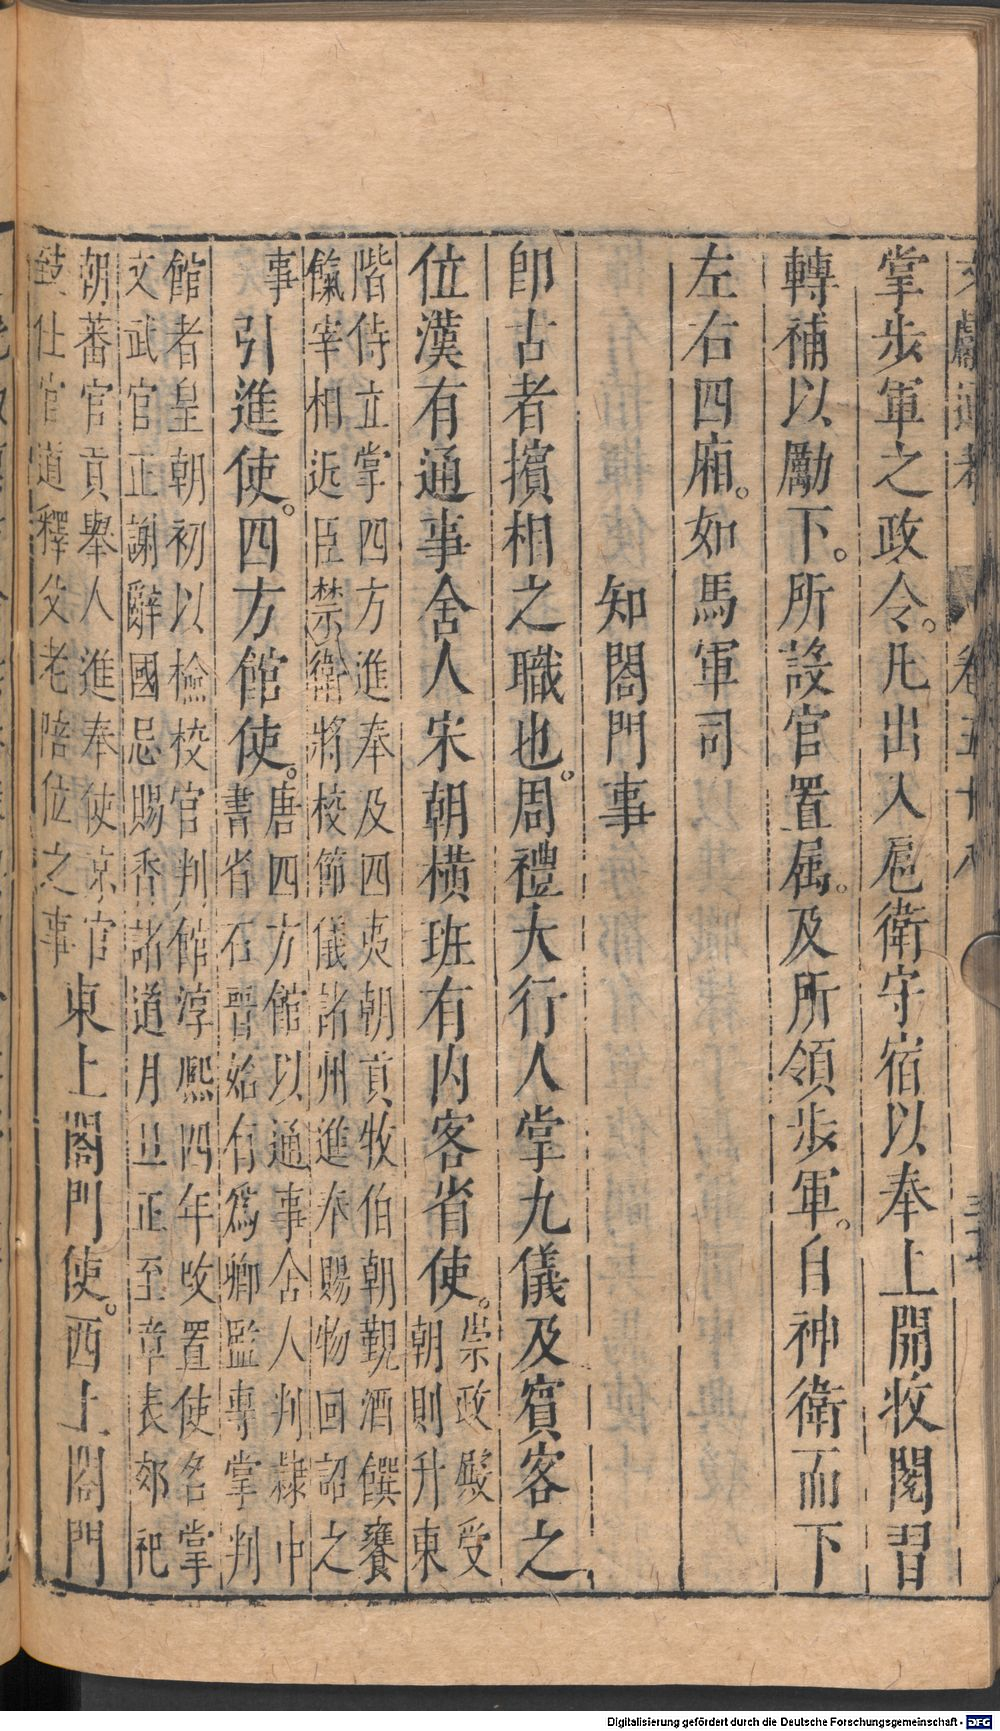 文獻通考 卷五十八
掌步軍之政令。凡出入扈衛守宿以奉上開收閱習
轉補以勵下。所設官置属。及所領步軍。自神衛而下
左右四廂。如馬軍司
知閤門事
卽古者擯相之職也。周禮大行人掌九儀及賓客之
位漢有通事舍人宋朝横班有内客省使。崇政殿受
朝則升東
階侍立掌四方進奉及四夷朝貢牧伯朝覲酒饌饔
餼宰相近臣禁衛將校節儀諸州進奉賜物回詔之
事引進使。四方館使。唐四方館以通事舍人判隸中
書省石晉始有爲卿監專掌判
館者皇朝初以檢校官判館淳熈四年改置使名掌
文武官正謝辭國忌賜香諸道月旦正至章表郊祀
朝蕃官貢舉人進奉使京官
致仕官道釋父老陪位之事
東上閤門使。西上閤門
Digitalisierung gefördert durch die Deutsche Forschungsgemeinschaft - DFG